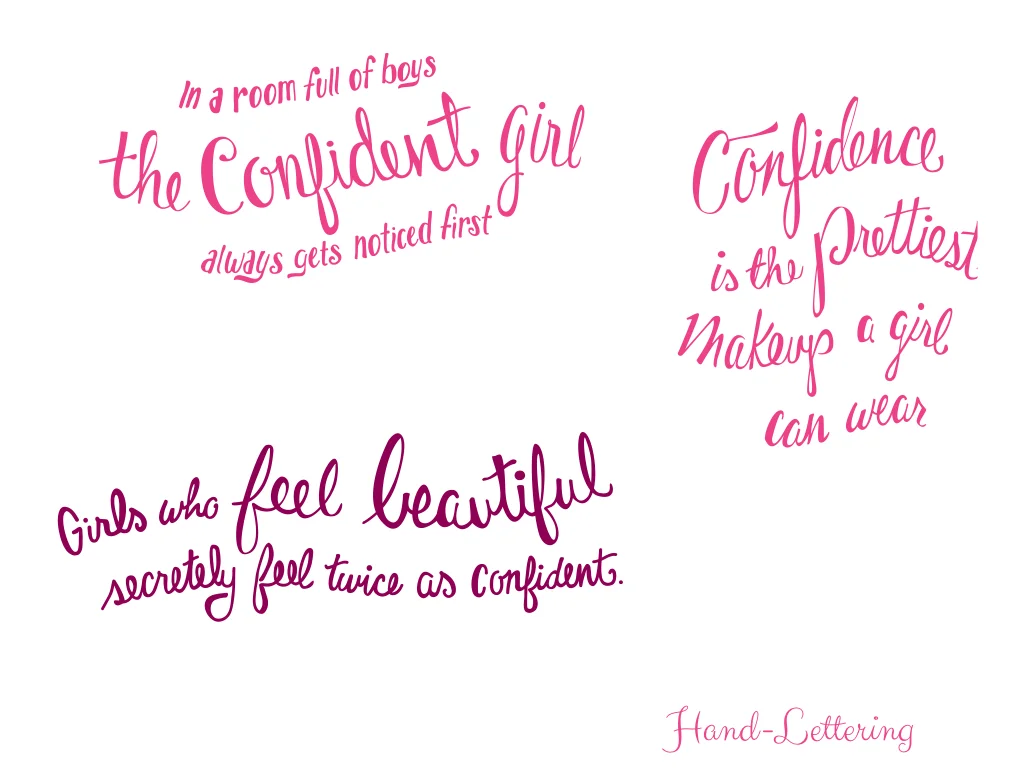 In a room full of boys
the Confident girl
always gets noticed first
Confidence
is the Prettiest
Makeup a girl
can wear
Girls who feel beautiful
secretely feel twice as confident.
Hand-Lettering